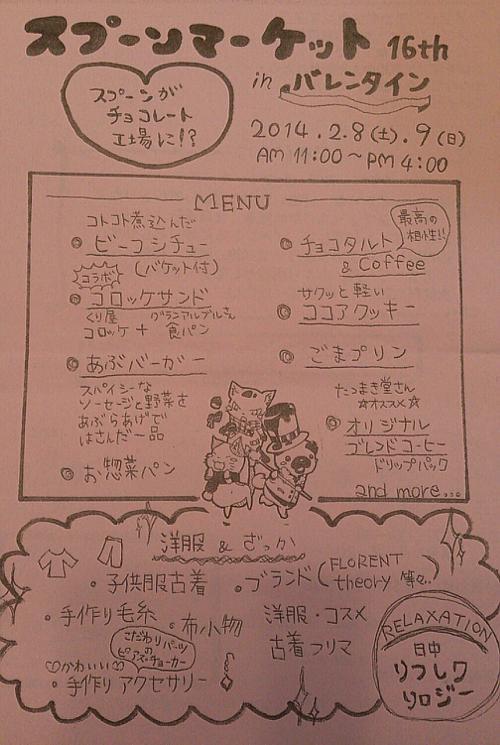 スプーンマーケット 16th
in バレンタイン
スプーンが
チョコレート
工場に!?
2014.2.8(土).9(日)
AM 11:00~PM 4:00
MENU
コトコト煮込んだ
ビーフシチュー
(バケット付)
コラボ
コロッケサンド
くり屋 グランアルブルさん
コロッケ + 食パン
あぶバーガー
スパイシーな
ソーセージと野菜を
あぶらあげで
はさんだ一品
お惣菜パン
最高の
相性!!
チョコタルト
& Coffee
サクッと軽い
ココアクッキー
ごまプリン
たつまき堂さん
☆オススメ☆
オリジナル
ブレンドコーヒー
ドリップパック
and more...
洋服 & ざっか
・子供服古着
・手作り毛糸
・布小物
こだわりパーツ
の
ピアス・チョーカー
♡かわいい♡
・手作り アクセサリー
・ブランド(FLORENT
theory 等..)
洋服・コスメ
古着フリマ
RELAXATION
日中
リフレク
ソロジー